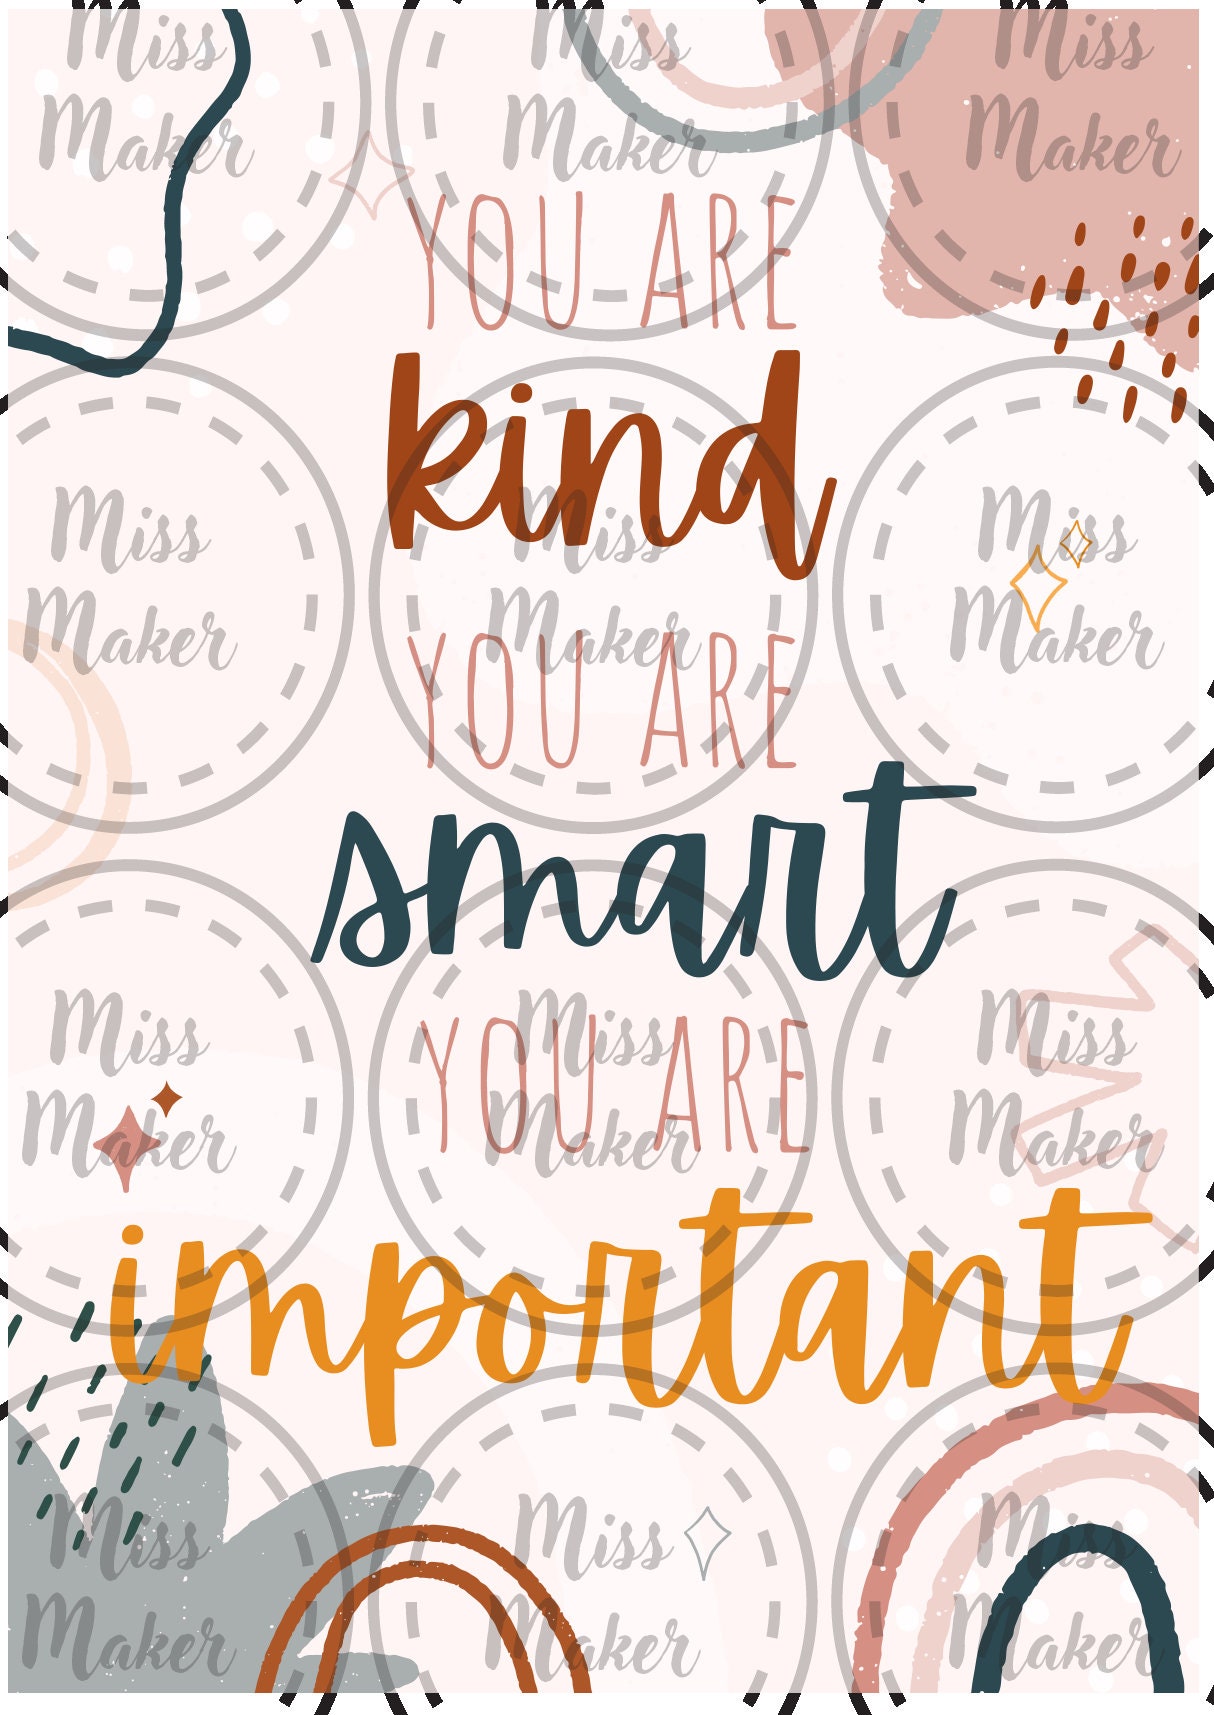 Miss Miss Miss
Maker Maker Maker
YOU ARE
kind
Miss Miss Miss
Maker Maker Maker
YOU ARE
smart
Miss Miss Miss
YOU ARE
Maker Maker Maker
important
Miss Miss Miss
Maker Maker Maker